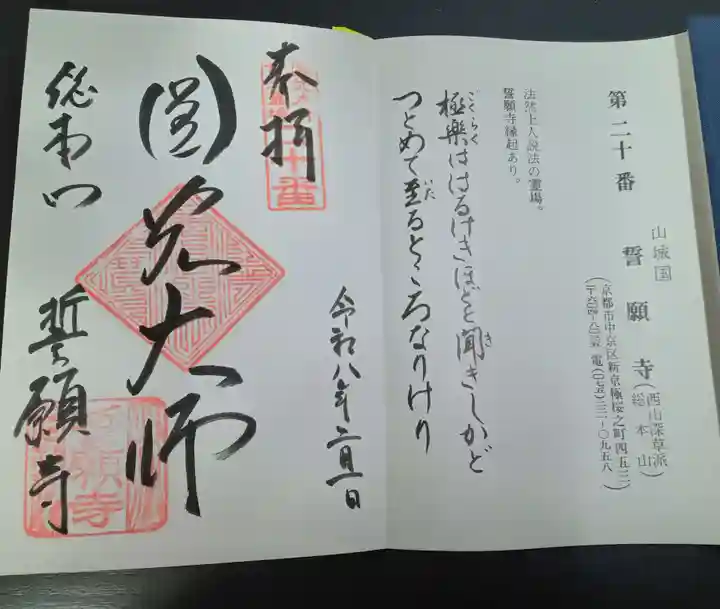 第二十番
山城国
誓願寺
(西山深草派
総本山)
(京都市中京区新京極桜之町四五三
法然上人説法の霊場。
誓願寺縁起あり。
極楽ははるけきほどと聞きしかど
ごくらく
き
つとめて至るところなりけり
いた
奉拝
十番
令和八年二月一日
圓光大師
総本山
誓願寺
願寺